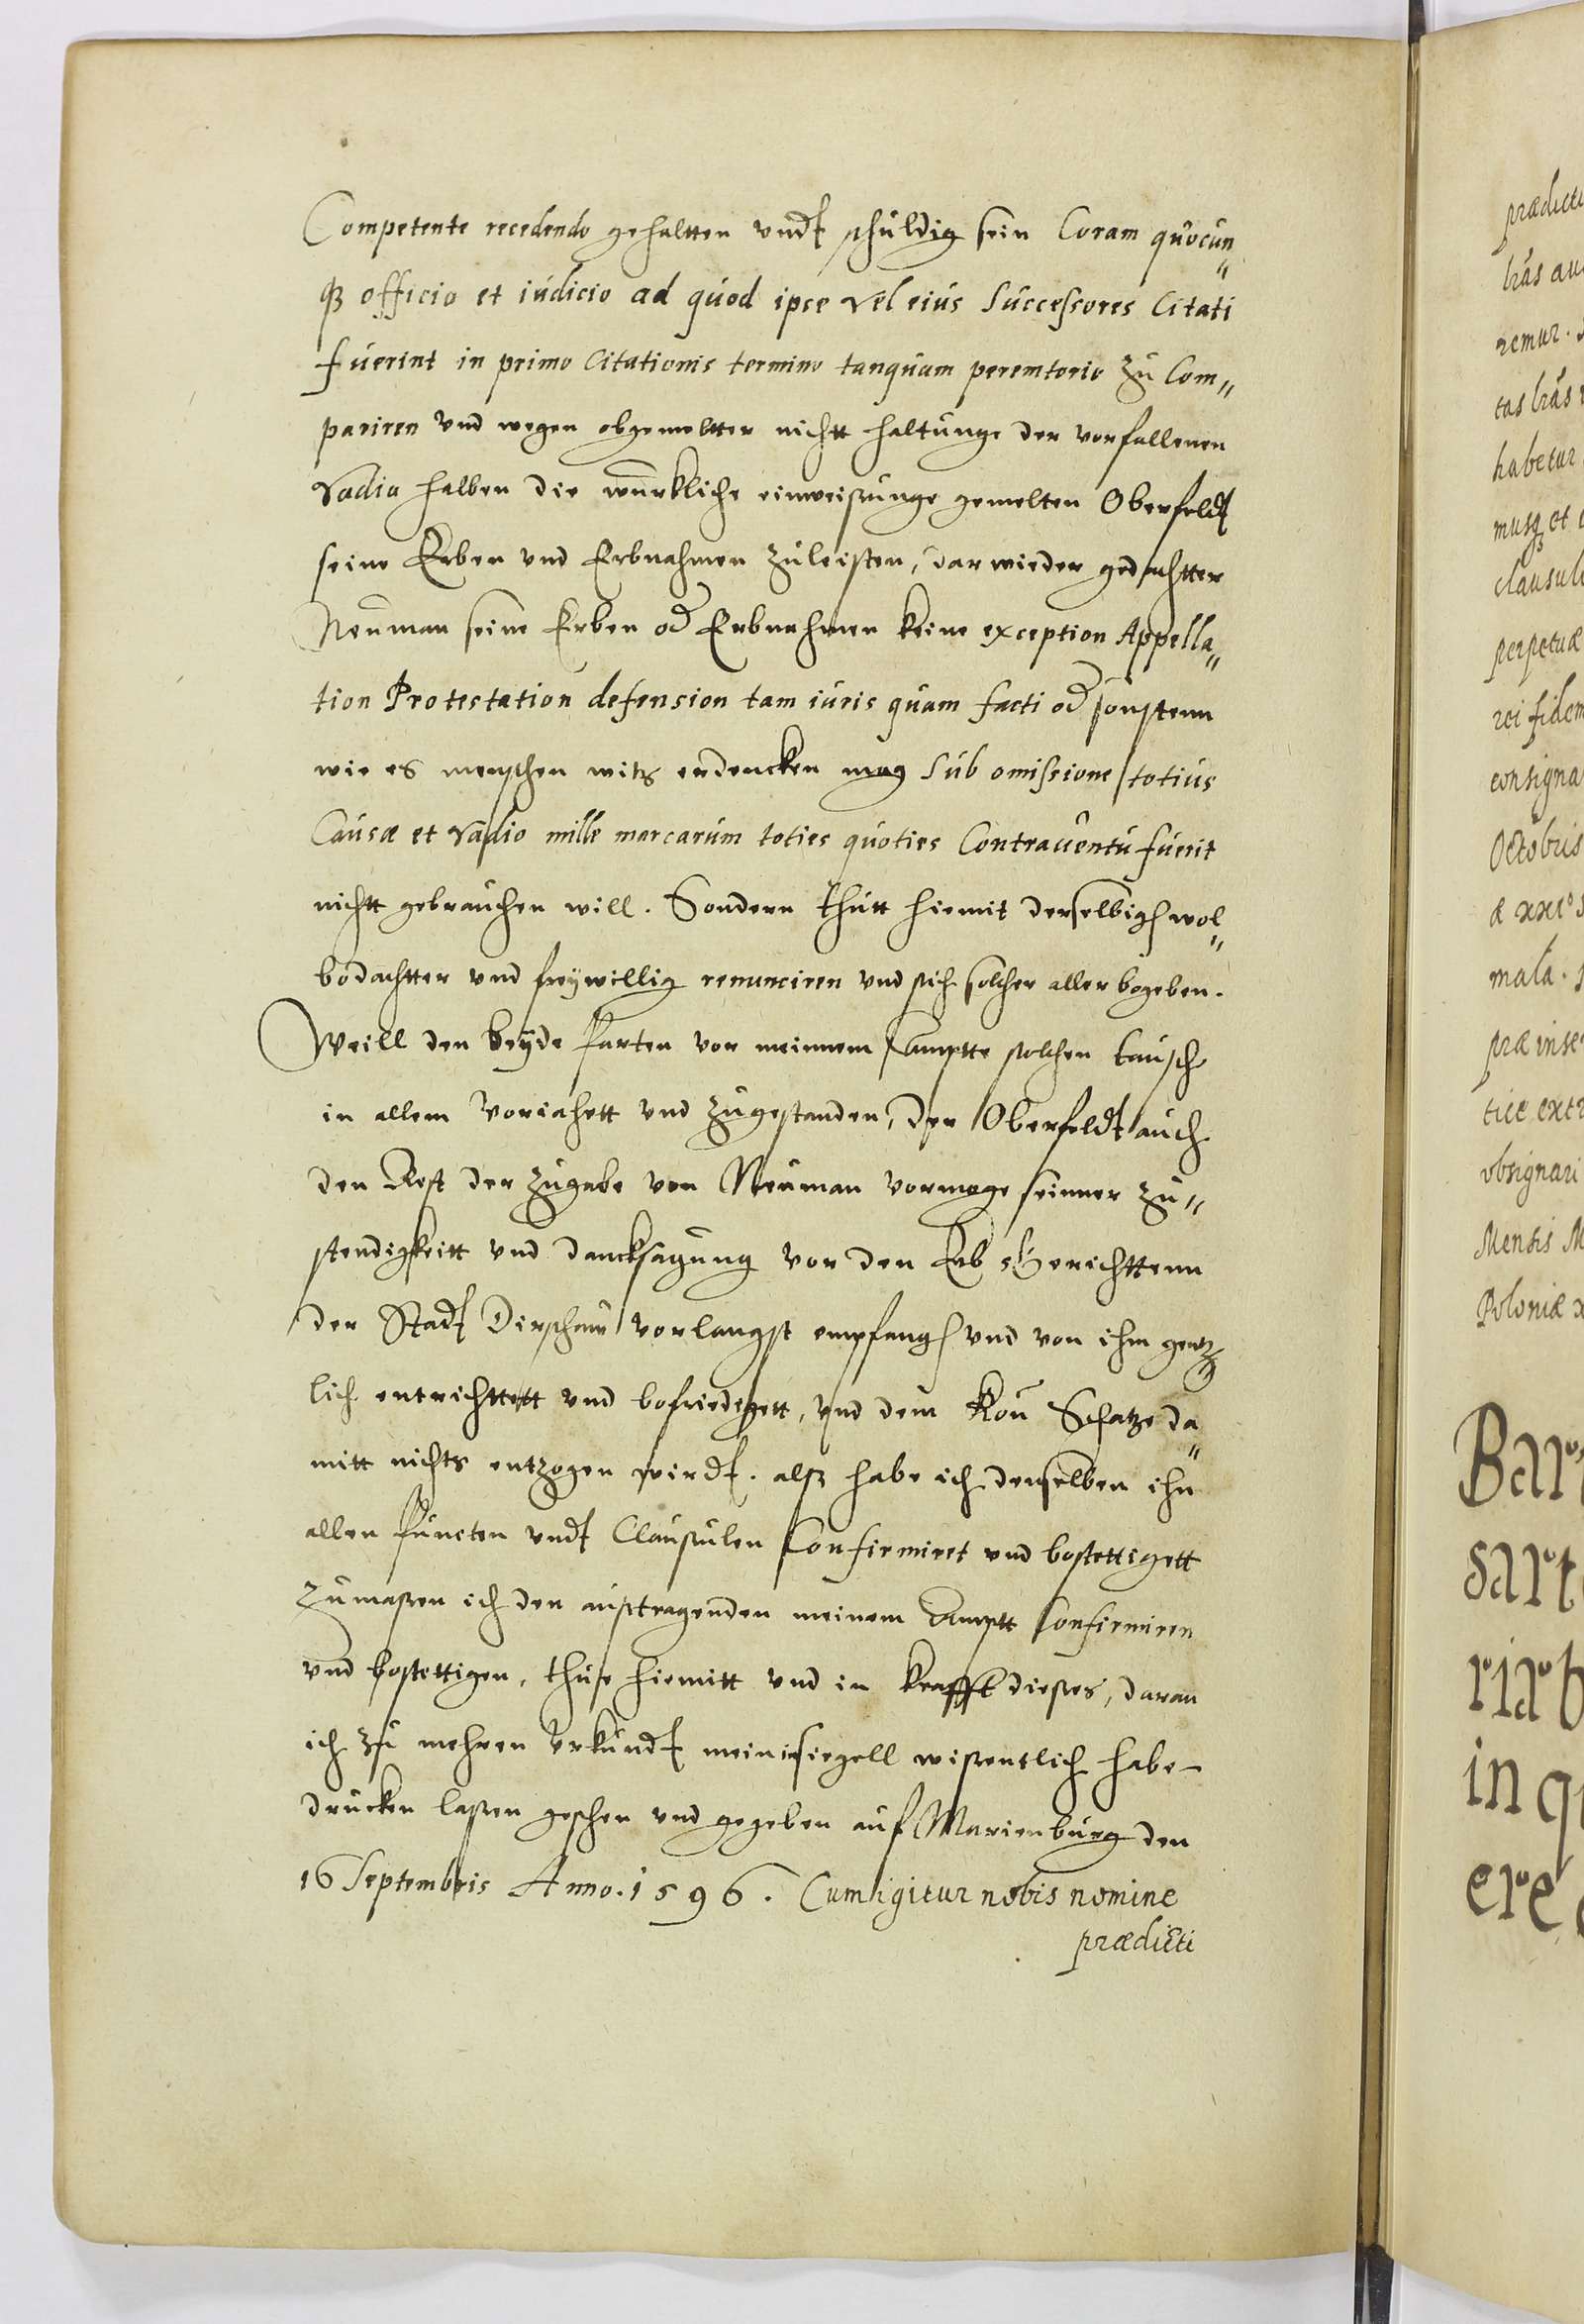 Competente recedendo gehaltten undt schuldig sein Coram quocun„
q3 officio et iudicio ad quod ipse vel eius Successores Citati
fuerint in primo Citationis termino tanquam peremtorio zu Com„
pariren und wegen obgemeltter nichtt haltunge der vorfallenen
Vadia halben die würkliche einweisunge gemelten Oberfeldt
seine Erben und Erbnahmen zuleisten, darwieder gedachtter
Neuman seine Erben od Erbnahmen keine exception Appella„
tion Protestation defension tam iuris quam facti od sonstenn
wie es menschen witz erdencken mag Sub omissione totius
Causæ et Vadio mille marcarum toties quoties Contrauentu fuerit
nichtt gebrauchen will. Sondern thutt hiemit derselbigen wol„
bedachtter und freywillig renunciren und sich solcher aller begeben.
Weill den beyde Parten vor meinem Ampte solchen tausch
in allem voriahett und zugestanden, der Oberfeldt auch
den Rest der zugabe von Neuman vormoge seinner zu„
stendigkeitt und dancksagung vor den Erb Gerichttenn
der Stadt Dirschaw vorlangst empfangen und von ihm gentz„
lich entrichttett und befriedegett, und dem Kön Schatze da„
mitt nichts entzogen wirdt. alss habe ich denselben ihn
allen Puncten undt Clausulen Confirmiret und bestettigett
zumassen ich den austragenden meinem Amptt Confirmiren
und bestettigen, thue hiemitt und in krafft dieses, daran
ich zu mehren Urkundt mein siegell wissentlich habe
drucken lassen geschen und gegeben auf Marienburg den
16 Septembris Anno. 1596. Cum igitur nobis nomine
prædicti
prædicti
remur.
habetur
perpetuæ
rei fidem
consigna
Octobris
obsignari
Mensis M
Poloniæ
Bar
sart
riæ
in q
ere